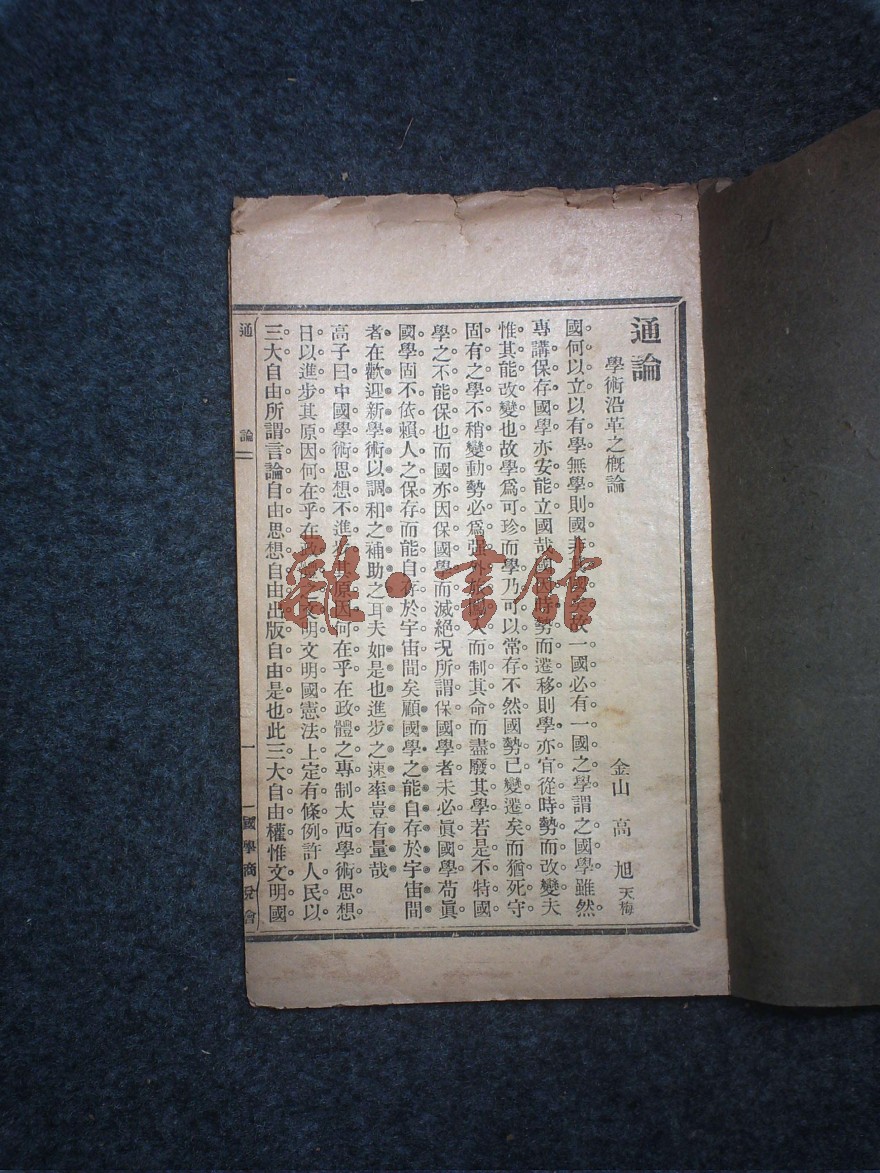 通論
學術沿革之概論
金山 高 旭 天梅
國何以立以有學無學則國非其國矣故一國必有一國之學謂之國學雖然
專講保存國學亦安能立國哉國因時勢而遷移則學亦宜從時勢而改變夫
惟其能改變也故學爲可珍而學乃可以常存不然國勢已變遷矣而猶死守
固有之學不稍變動勢必爲強人而制其命而盡廢其學若是不特國
學之不能保也而國亦因保國學而滅絕况所謂保國學者未必眞國學苟眞
國學固不依賴人之保存而能自存於宇宙間矣顧國學之能自存於宇宙間
者在歡迎新學術以調和之補助之耳夫如是也進步之速率豈有量哉
高子曰中國學術思想不進步其原因何在乎在政體之專制太西學術思想
日以進步其原因何在乎在政體之文明文明國憲法上定有條例許人民以
三大自由所謂言論自由思想自由出版自由是也此三大自由權惟文明國
通 論
一
國學商兌會
雜·書館